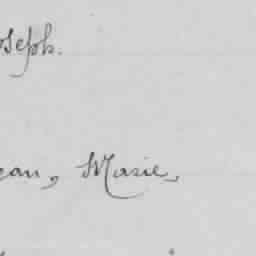 oseph.
ean, Marie,